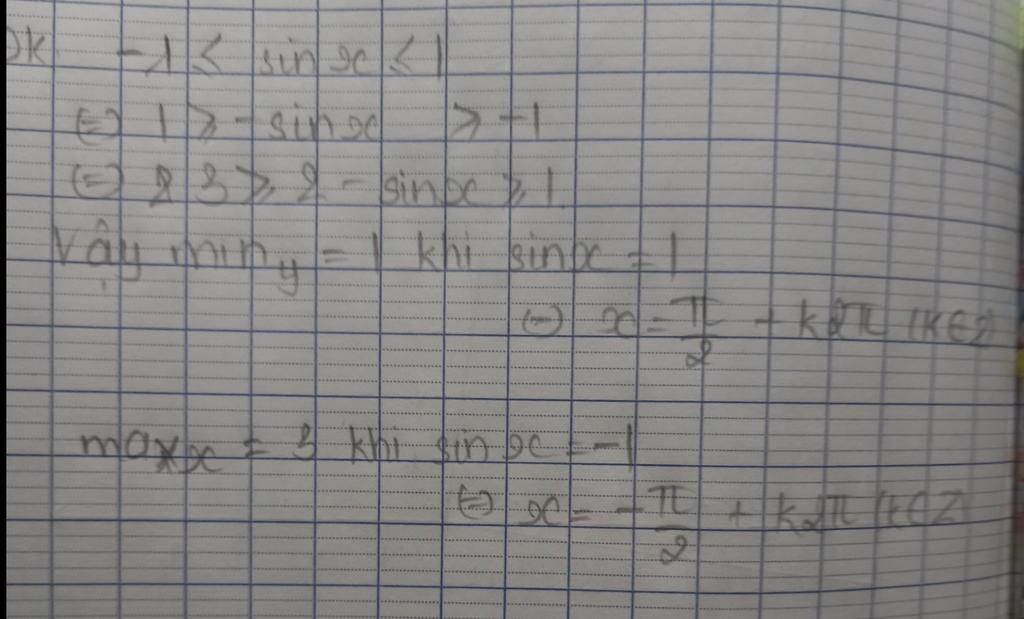 ĐK -1 ≤ sin x ≤ 1
⇔ 1 ≥ -sin x ≥ -1
⇔ 3 ≥ 2 - sin x ≥ 1
Vậy min y = 1 khi sin x = 1
⇔ x = π/2 + k2π (k∈Z)
max x = 3 khi sin x = -1
⇔ x = -π/2 + k2π (k∈Z